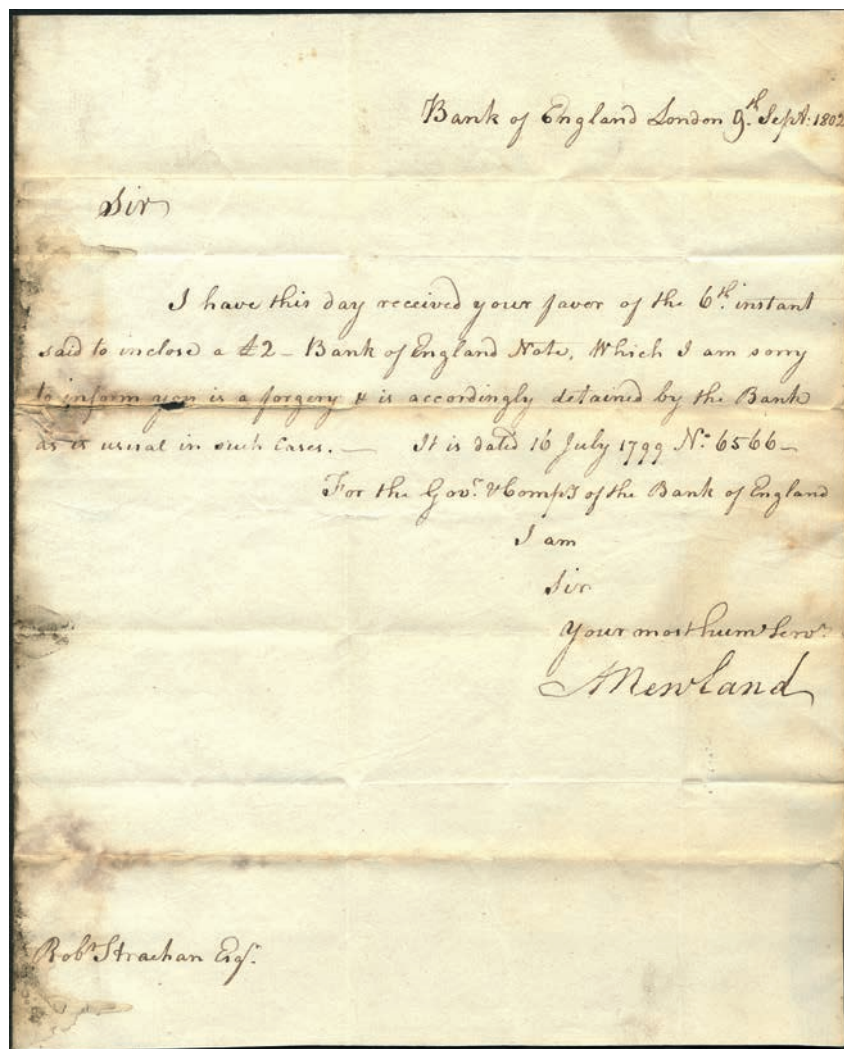 Bank of England London 9.th Sept: 1802
Sir
I have this day received your favor of the 6.th instant
said to inclose a £2 – Bank of England Note, Which I am sorry
to inform you is a forgery & is accordingly detained by the Bank
as is usual in such Cases. — It is dated 16 July 1799 N.o 6566 –
For the Gov.r & Comp.y of the Bank of England
I am
Sir
Your most hum.e Serv.t
A Newland
Rob.t Strachan Esq.r